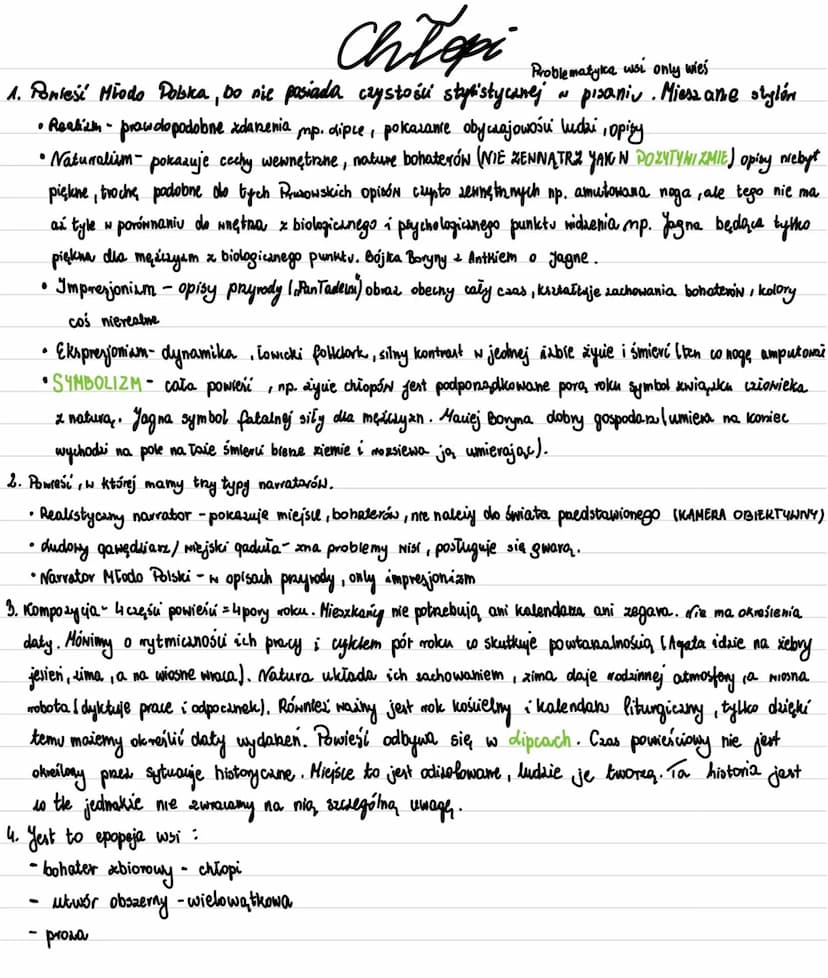 Chłopi
Problematyka wsi only wieś
1. Powieść Młodo Polska, bo nie posiada czystości stylistycznej w pisaniu. Mieszane stylów
• Realizm - prawdopodobne zdarzenia np. Lipce, pokazanie obyczajowości ludzi, opisy
• Naturalizm - pokazuje cechy wewnętrzne, naturę bohaterów (NIE ZEWNĄTRZ JAK W POZYTYWIZMIE) opisy niebyt
piękne, trochę podobne do tych Prusowskich opisów czysto zewnętrznych np. amutowana noga, ale tego nie ma
aż tyle w porównaniu do wnętrza z biologicznego i psychologicznego punktu widzenia np. Jagna będąca tylko
piękna dla mężczyzn z biologicznego punktu. Bójka Boryny z Antkiem o Jagnę.
• Impresjonizm - opisy przyrody („Pan Tadeusz") obraz obecny cały czas, kształtuje zachowania bohaterów, kolory
coś nierealne
• Ekspresjonizm - dynamika, łowicki folklork, silny kontrast w jednej izbie życie i śmierć (ten co nogę amputował
• SYMBOLIZM - cała powieść, np. życie chłopów jest podporządkowane porą roku symbol związku człowieka
z naturą. Jagna symbol fatalnej siły dla mężczyzn. Maciej Boryna dobry gospodarz (umiera na koniec
wychodzi na pole na łaie śmierci bierze ziemie i rozsiewa ją umierając).
2. Powieść, w której mamy trzy typy narratorów.
• Realistyczny narrator - pokazuje miejsce, bohaterów, nie należy do świata przedstawionego (KAMERA OBIEKTYWNY)
• Ludowy gawędziarz / wiejski gaduła - zna problemy wsi, posługuje się gwarą.
• Narrator Młodo Polski - w opisach przyrody, only impresjonizm
3. Kompozycja - 4 części powieści = 4 pory roku. Mieszkańcy nie potrzebują ani kalendarza ani zegara. Nie ma określenia
daty. Mówimy o rytmiczności ich pracy i cyklem pór roku co skutkuje powtarzalnością (Agata idzie na żebry
jesień, zima, a na wiosnę wraca). Natura układa ich zachowaniem, zima daje rodzinnej atmosfery, a wiosna
robota (dyktuje prace i odpoczynek). Również ważny jest rok kościelny i kalendarz liturgiczny, tylko dzięki
temu możemy określić daty wydarzeń. Powieść odbywa się w Lipcach. Czas powieściowy nie jest
określony przez sytuacje historyczne. Miejsce to jest odizolowane, ludzie je tworzą. Ta historia jest
w tle jednakże nie zwracamy na nią szczególną uwagę.
4. Jest to epopeja wsi :
- bohater zbiorowy - chłopi
- utwór obszerny - wielowątkowa
- proza